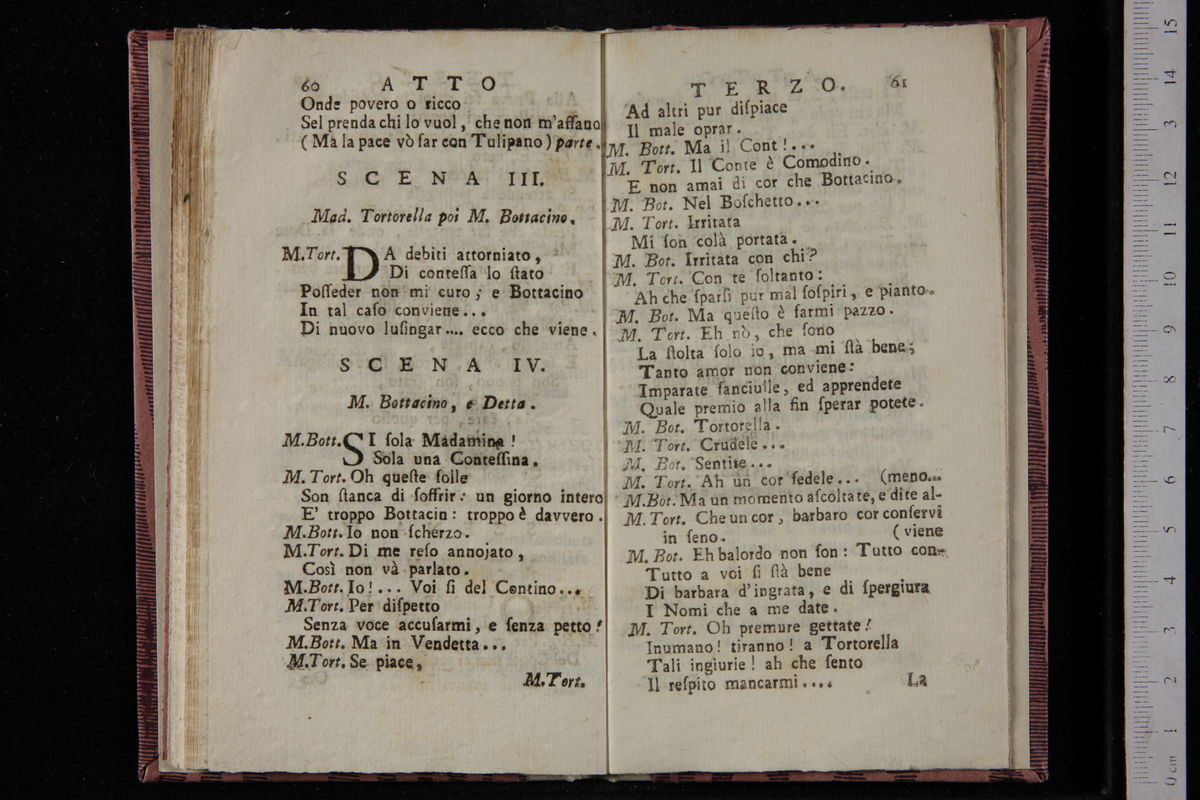 60 ATTO
Onde povero o ricco
Sel prenda chi lo vuol, che non m'affano
(Ma la pace vò far con Tulipano) parte.
SCENA III.
Mad. Tortorella poi M. Bottacino.
M.Tort. DA debiti attorniato,
Di conteſſa lo ſtato
Poſſeder non mi curo; e Bottacino
In tal caſo conviene...
Di nuovo luſingar.... ecco che viene.
SCENA IV.
M. Bottacino, e Detta.
M.Bott. SI ſola Madamina!
Sola una Conteſſina.
M. Tort. Oh queſte folle
Son ſtanca di ſoffrir: un giorno intero
E' troppo Bottacin: troppo è davvero.
M.Bott. Io non ſcherzo.
M.Tort. Di me reſo annojato,
Così non và parlato.
M.Bott. Io!... Voi ſi del Contino...
M.Tort. Per diſpetto
Senza voce accuſarmi, e ſenza petto!
M.Bott. Ma in Vendetta...
M.Tort. Se piace,
M.Tort.
TERZO. 61
Ad altri pur diſpiace
Il male oprar.
M. Bott. Ma il Cont!...
M. Tort. Il Conte è Comodino.
E non amai di cor che Bottacino.
M. Bot. Nel Boſchetto...
M. Tort. Irritata
Mi ſon colà portata.
M. Bot. Irritata con chi?
M. Tort. Con te ſoltanto:
Ah che ſparſi pur mal ſoſpiri, e pianto.
M. Bot. Ma queſto è farmi pazzo.
M. Tort. Eh nò, che ſono
La ſtolta ſolo io, ma mi ſtà bene;
Tanto amor non conviene:
Imparate fanciulle, ed apprendete
Quale premio alla fin ſperar potete.
M. Bot. Tortorella.
M. Tort. Crudele...
M. Bot. Sentite...
M. Tort. Ah un cor fedele... (meno...
M.Bot. Ma un momento aſcoltate, e dite al-
M. Tort. Che un cor, barbaro cor conſervi
in ſeno. (viene
M. Bot. Eh balordo non ſon: Tutto con-
Tutto a voi ſi ſtà bene
Di barbara d'ingrata, e di ſpergiura
I Nomi che a me date.
M. Tort. Oh premure gettate!
Inumano! tiranno! a Tortorella
Tali ingiurie! ah che ſento
Il reſpito mancarmi.... La